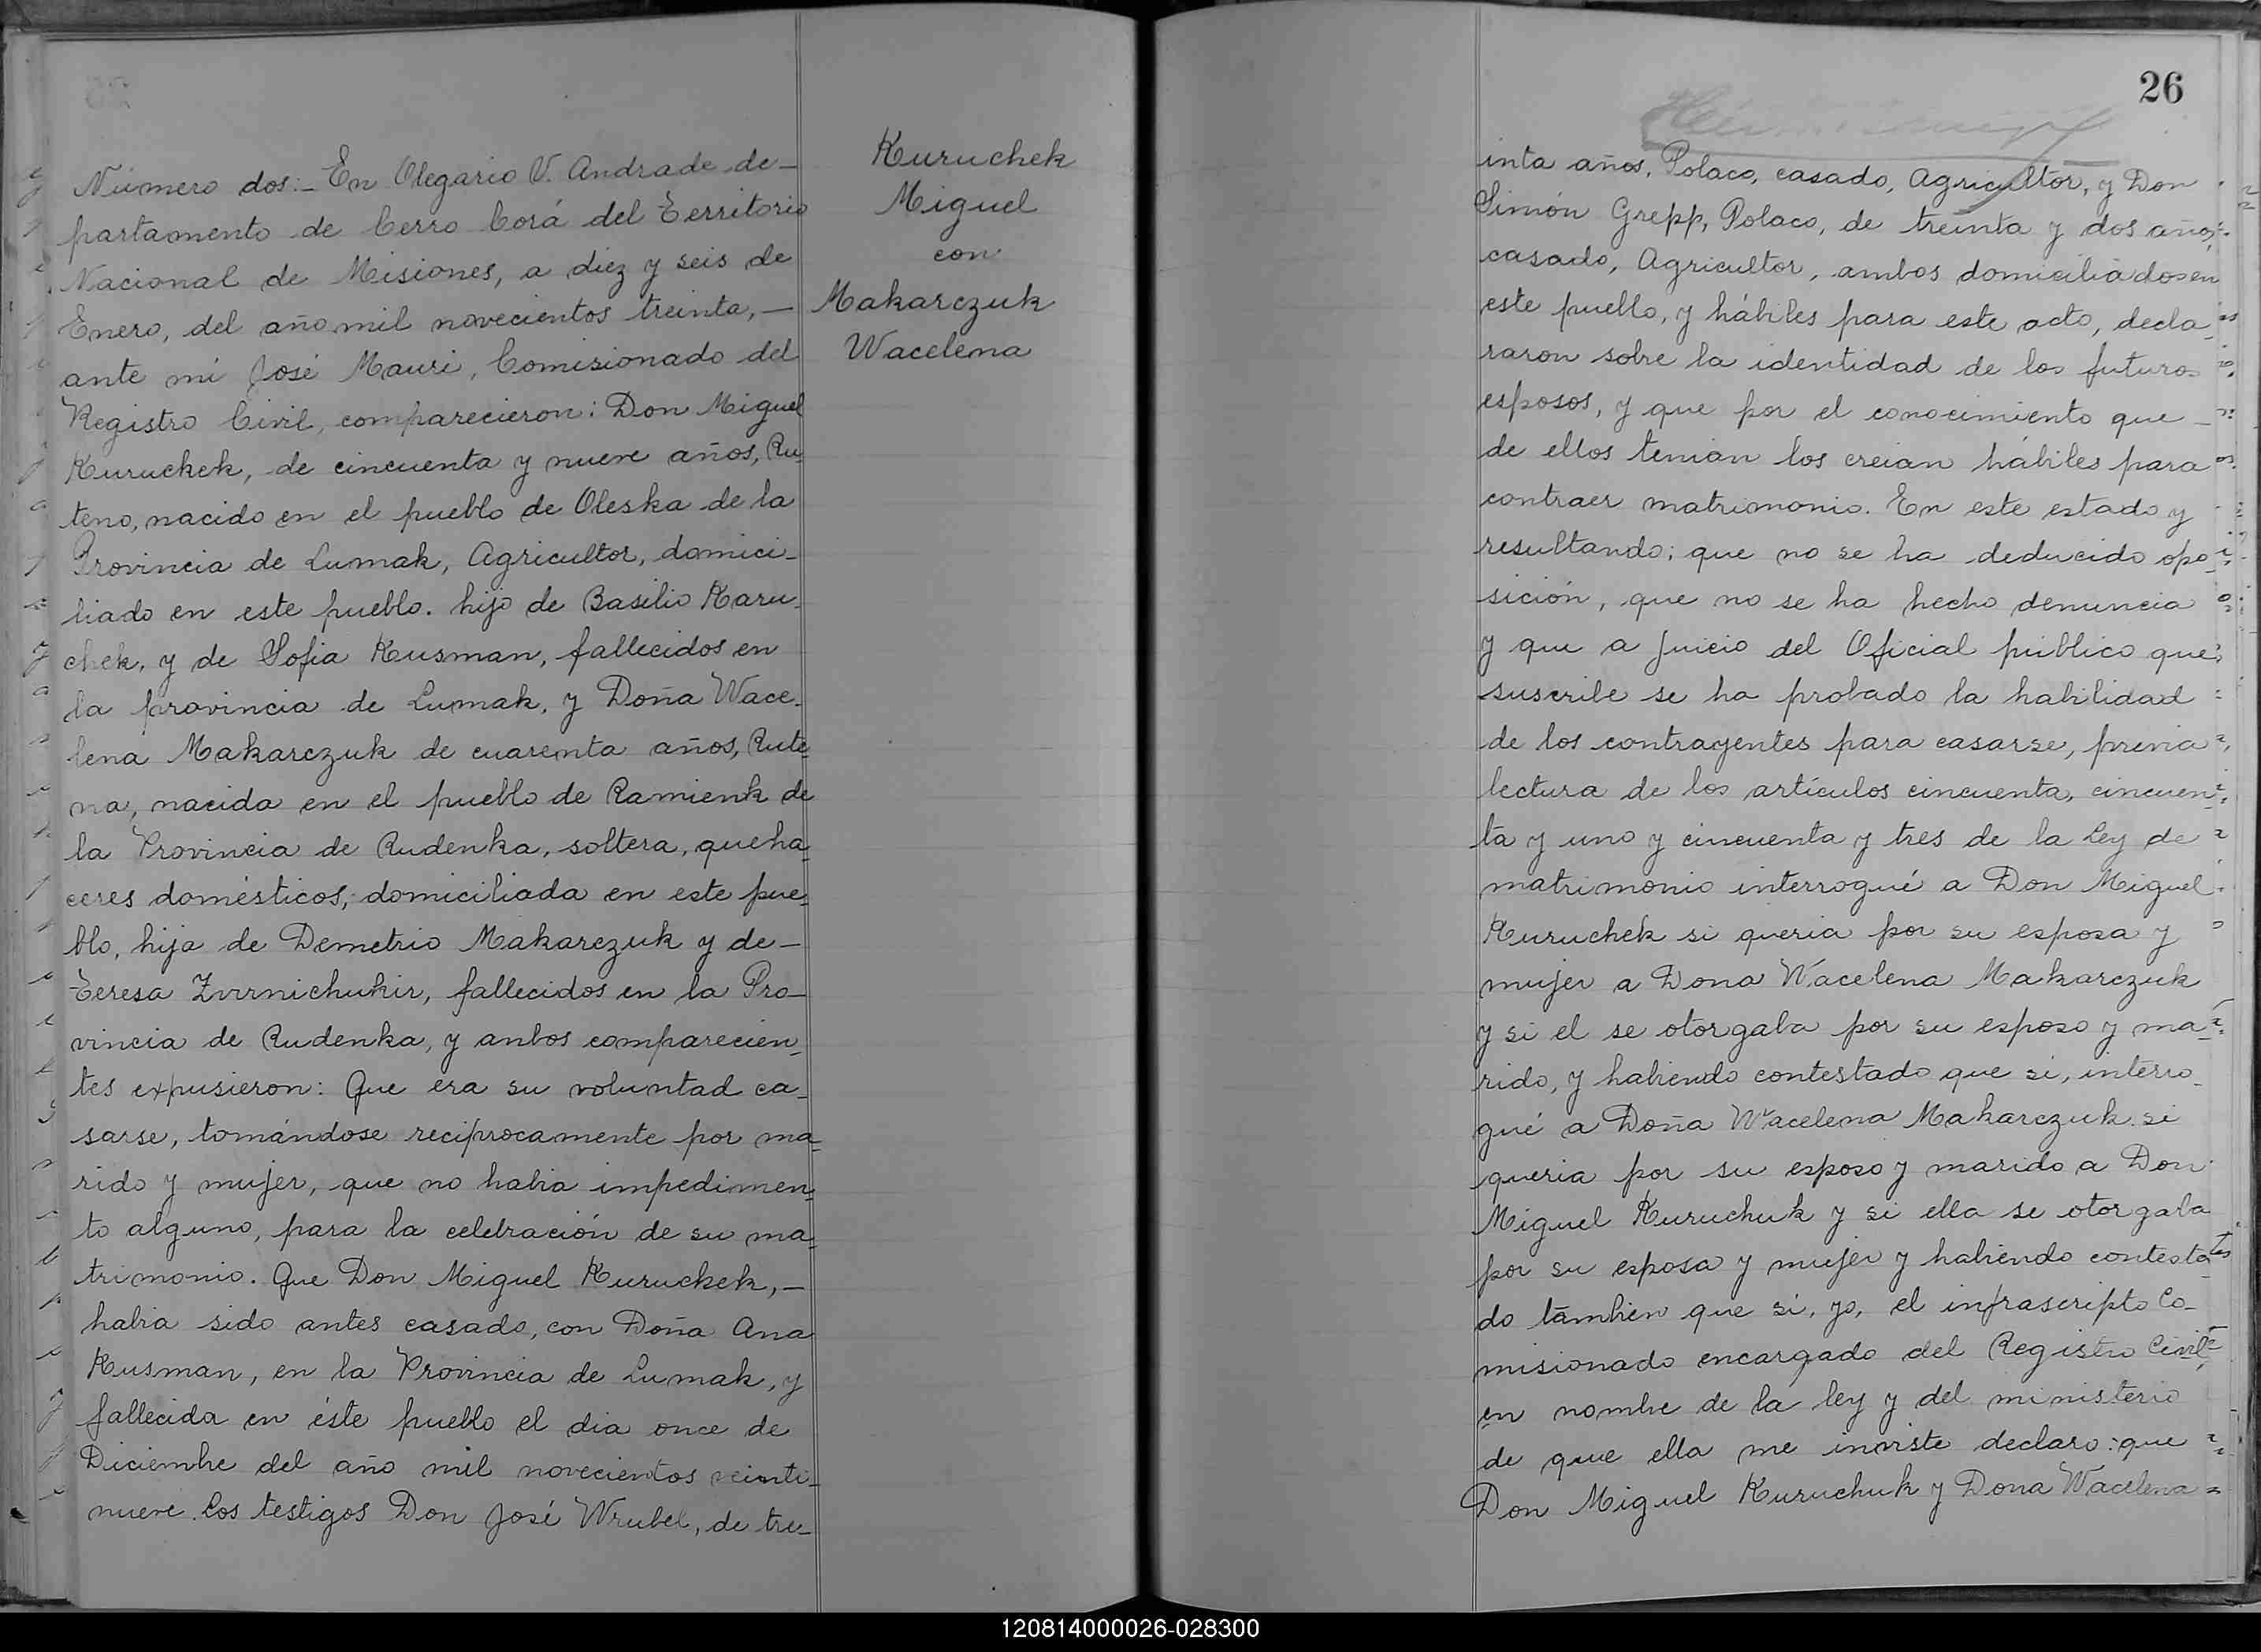 Número dos:- En Olegario V. Andrade de-
partamento de Cerro Corá del Territorio
Nacional de Misiones, a diez y seis de
Enero, del año mil novecientos treinta,-
ante mi José Mauri, Comisionado del
Registro Civil, comparecieron: Don Miguel
Kuruchek, de cincuenta y nueve años, Ru-
teno, nacido en el pueblo de Oleska de la
Provincia de Lumak, Agricultor, domici-
liado en este pueblo. hijo de Basilio Karu-
chek, y de Sofia Kusman, fallecidos en
la provincia de Lumak, y Doña Wace-
lena Makarczuk de cuarenta años, Rute-
na, nacida en el pueblo de Ramienk de
la Provincia de Rudenka, soltera, queha-
ceres domésticos, domiciliada en este pue-
blo, hija de Demetrio Makarczuk y de-
Teresa Zvirnichukir, fallecidos en la Pro-
vincia de Rudenka, y anbos comparecien-
tes expusieron: Que era su voluntad ca-
sarse, tomándose reciprocamente por ma-
rido y mujer, que no habia impedimen-
to alguno, para la celebración de su ma-
trimonio. Que Don Miguel Kuruchek,-
habia sido antes casado, con Doña Ana
Kusman, en la Provincia de Lumak, y
fallecida en éste pueblo el dia once de
Diciembre del año mil novecientos veinti-
nueve. Los testigos Don José Wrubel, de tre-
Kuruchek
Miguel
con
Makarczuk
Wacelena
26
inta años, Polaco, casado, Agricultor, y Don
Simón Grepp, Polaco, de treinta y dos años,
casado, Agricultor, ambos domiciliados en
este pueblo, y hábiles para este acto, decla-
raron sobre la identidad de los futuros
esposos, y que por el conocimiento que-
de ellos tenian los creian hábiles para
contraer matrimonio. En este estado y
resultando; que no se ha deducido opo-
sición, que no se ha hecho denuncia
y que a juicio del Oficial público que
suscribe se ha probado la habilidad
de los contrayentes para casarse, previa
lectura de los artículos cincuenta, cincuen-
ta y uno y cincuenta y tres de la Ley de
matrimonio interrogué a Don Miguel
Kuruchek si queria por su esposa y
mujer a Dona Wacelena Makarczuk
y si el se otorgaba por su esposo y ma-
rido, y habiendo contestado que si, interro-
gué a Doña Wacelena Makarczuk si
queria por su esposo y marido a Don
Miguel Kuruchuk y si ella se otorgaba
por su esposa y mujer y habiendo contesta-
do tambien que si, yo, el infrascripto Co-
misionado encargado del Registro Civil,
en nombre de la ley y del ministerio
de que ella me inviste declaro: que
Don Miguel Kuruchuk y Dona Wacelena
120814000026-028300